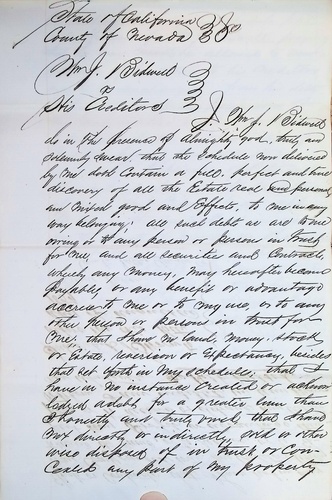 State of California
County of Nevada } SS
Wm J. Bidwell
To
His Creditors
I Wm J. Bidwell
do in the presence of Almighty god, truly and
solemnly swear, that the schedule now delivered
by me doth contain a full, perfect and true
discovery of all the Estate real and personal
and mixed good and Effects, to me in any
way belonging; all such debts as are to me
owing or to any person or persons in trust
for me, and all securities and contracts,
whereby any money, may hereafter become
payable, or any benefit or advantage
accrue to me or to my use, or to any
other person or persons in trust for
me; that I have no lands, money, stock
or Estate, reversion or Expectancy, besides
that set forth in my schedule, that I
have in no instance created or acknow
ledged a debt for a greater sum than
I honestly and truly owed, that I have
not directly or indirectly, sold or other
wise disposed of in trust or con-
cealed any part of my property